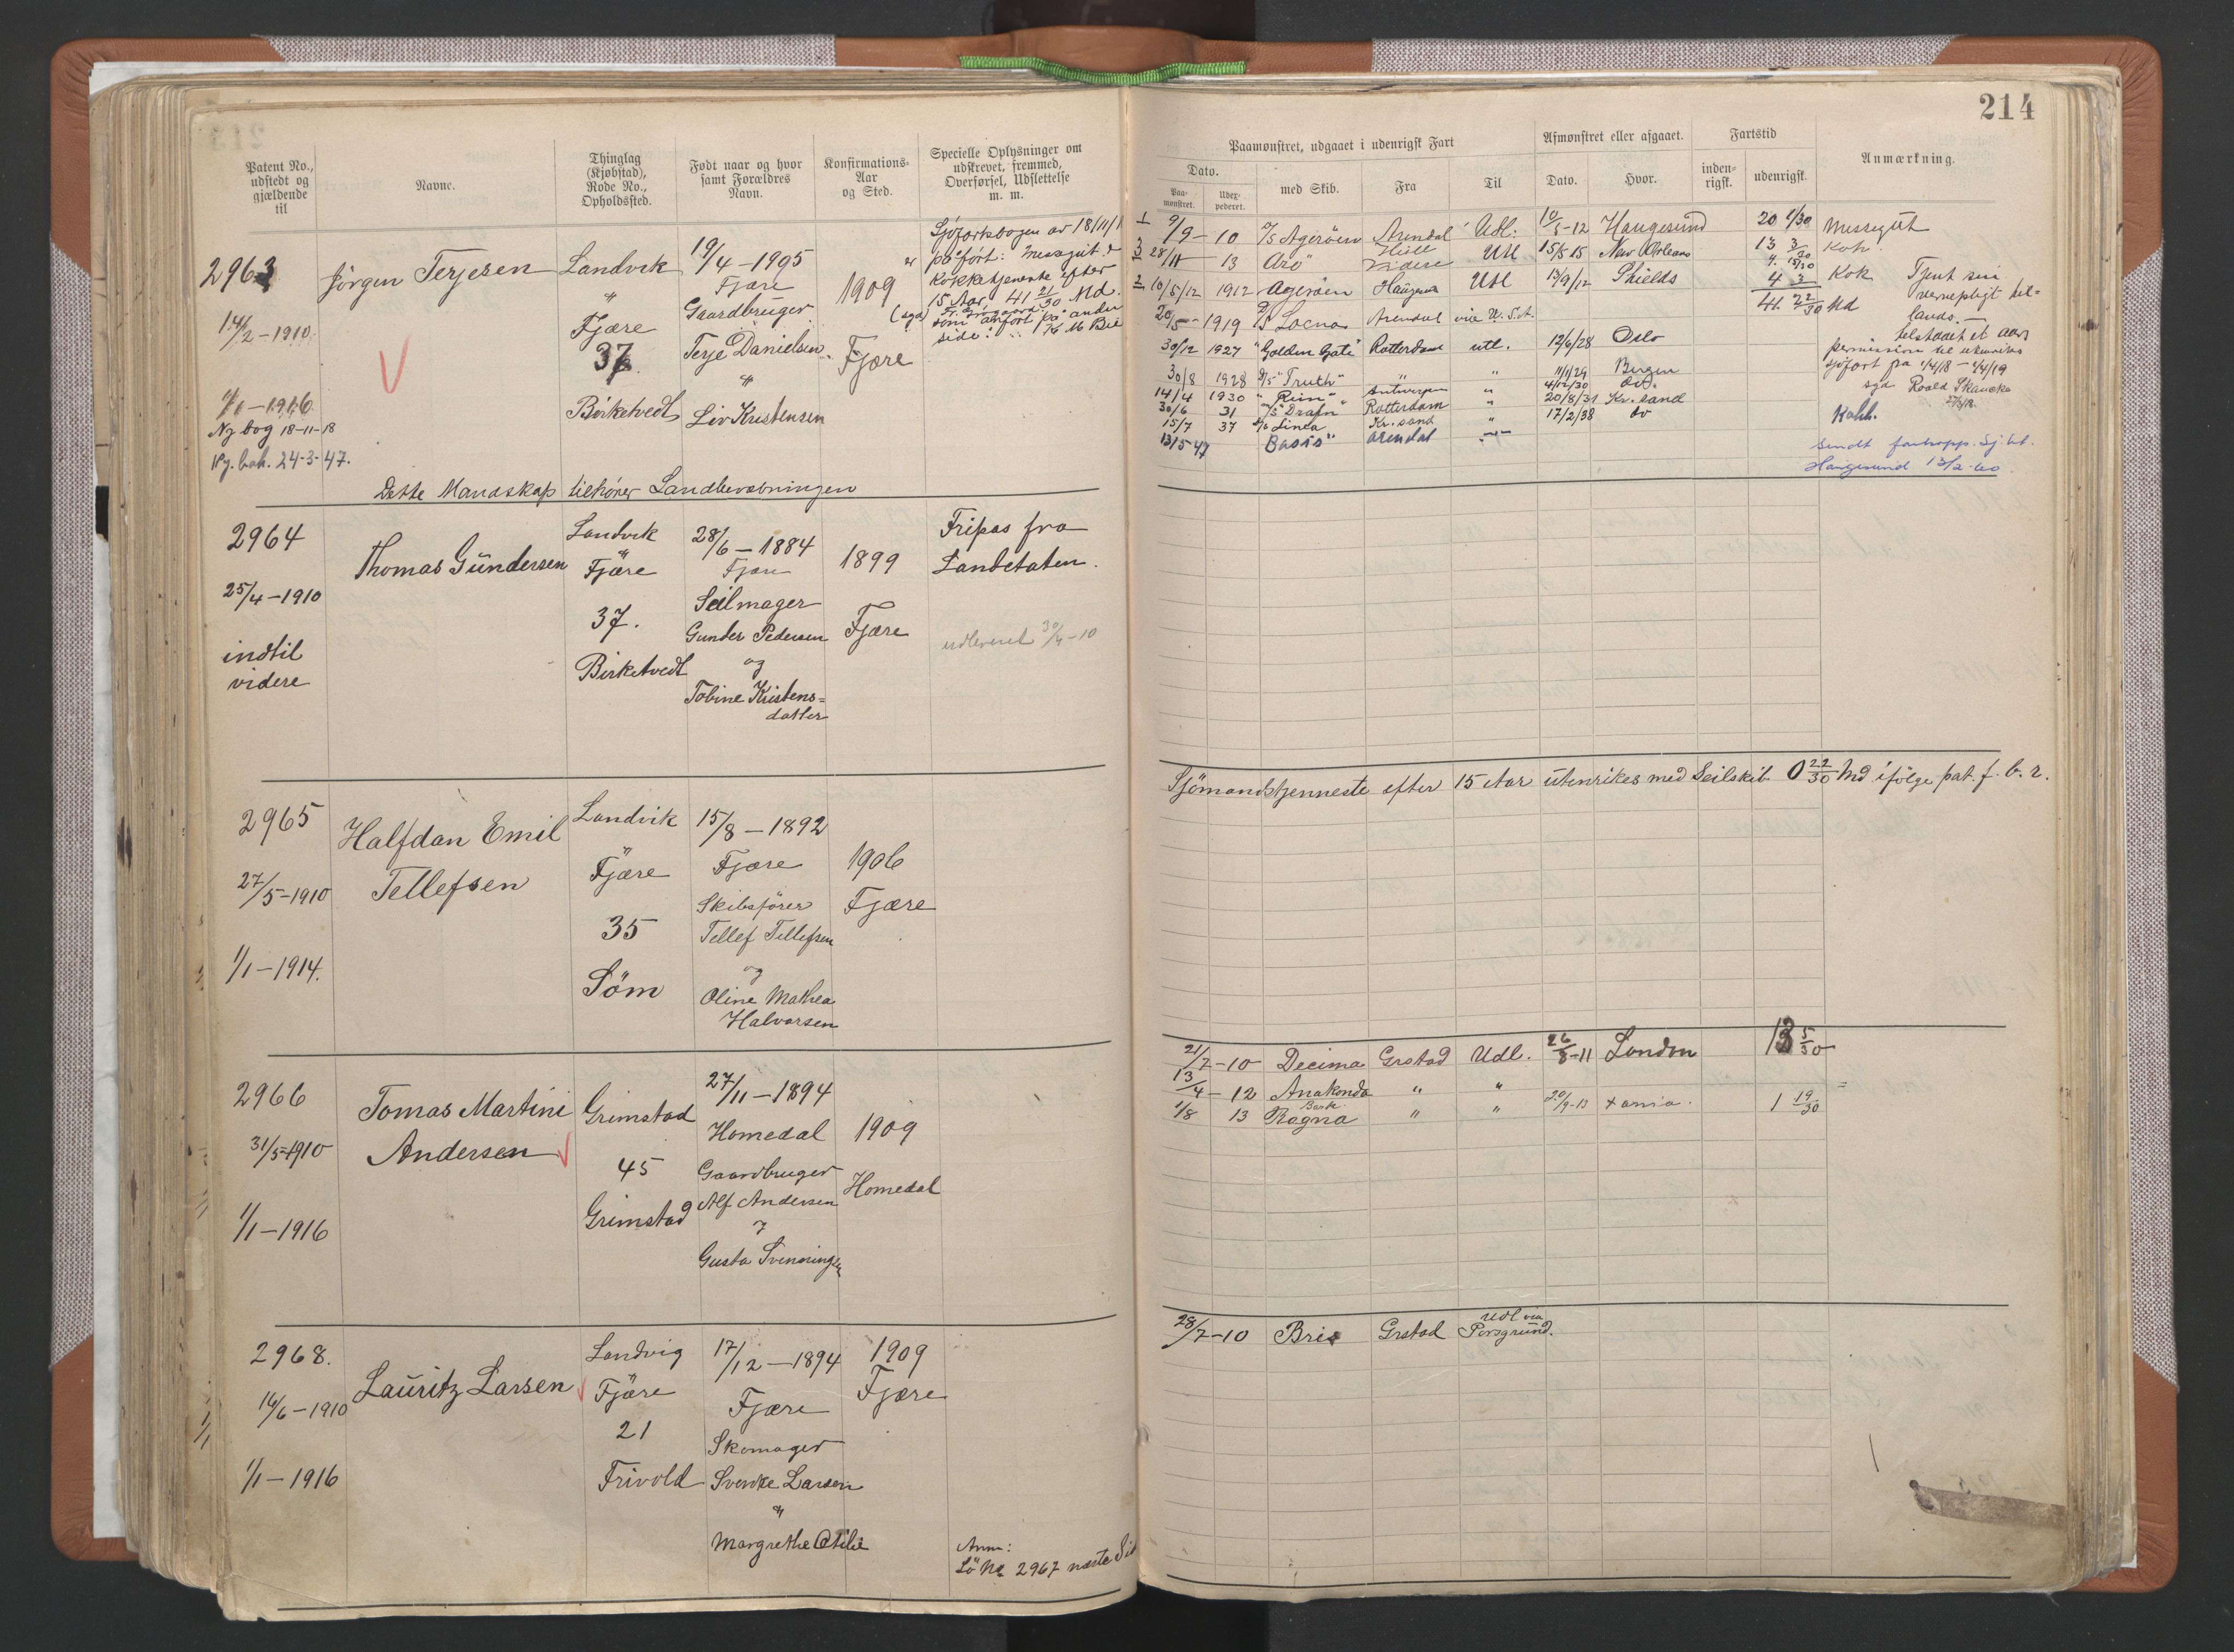 214
Patent No., udstedt og gjældende til
Navne.
Thinglag (Kjøbstad), Rode No., Opholdssted.
Født naar og hvor samt Forældres Navn.
Konfirmations- Aar og Sted.
Specielle Oplysninger om udskrevet, fremmed, Overførsel, Udslettelse m. m.
Paamønstret, udgaaet i udenrigsk Fart
Afmønstret eller afgaaet.
Fartstid
Anmærkning.
Dato.
Paa- mønstret.
Udex- pederet.
med Skib.
Fra
Til
Dato.
Hvor.
inden- rigsk.
udenrigsk.
2963
14/2 - 1910
Ny bog 18-11-18
Ny. bok. 24-3-47.
Jörgen Terjesen
Landvik
"
Fjære
37
Birketvedt
19/4 - 1905
Fjære
Gaardbruger
Terje Danielsen
Liv Kristensen
1909
Fjære
Sjöfartsbogen av 18/11/1
påfört: Messegut &
kokketjeneste efter
15 Aar, 41 21/30 Md.
som anfört på anden
side.
Dette Mandskap tilhører Landbevæbningen
1 9/9 - 10 D/S Agerøen Arendal Utl: 10/5-12 Haugesund 20 1/30 Messegut
3 28/11 13 Arö Utl 15/5 15 New Orleans 13 3/30 Kok
2 10/5/12 1912 Agerøen Utl 13/9/12 Shields 4 Kok
41 22/30 Md
20/5 - 1919 Arendal via U.S.A.
30/12 1927 "Golden Gate" Rotterdam utl. 12/6/28 Oslo
30/8 1928 D/S "Truth" " " 11/1/29 Bergen
14/4 1930 " Antwerpen " 4/12/30 do.
30/6 31 D/S "Drafn" Rotterdam " 20/8/31 Kr.sand
15/7 37 Linea Kr.sand " 17/2/38 do
13/5-47 Basis" Arendal
Tjent sin
vernepligt til-
lands. —
tilstaaet et aars
permission til utenriks
sjöfart fra 1/4/18 - 1/4/19
Roald Skancke
Haugesund 13/2-60
2964
25/4 - 1910
indtil
videre
Thomas Gundersen
Landvik
"
Fjære
37.
Birketvedt
28/6 - 1884
Fjære
Seilmager
Gunder Pedersen
og
Tobine Kristens=
datter
1899
Fjære
Fripas fra
Landetaten.
udleveret 30/4-10
2965
27/5-1910
1/1 - 1914.
Halfdan Emil
Tellefsen
Landvik
Fjære
35
Söm
15/8 - 1892
Fjære
Skibsfører
Tellef Tellefsen
og
Oline Mathea
Halvorsen
1906
Fjære
Sjömandstjenneste efter 15 Aar utenrikes med Seilskib 0 22/30 Md ifölge pat. f. b. r.
2966
31/5-1910
1/1 - 1916
Tomas Martini
Andersen
Grimstad
45
Grimstad
27/11 - 1894
Homedal
Gaardbruger
Alf Andersen
Gusta Svenningsen
1909
Homedal
21/7 - 10 Decima Grstad Udl. 26/8-11 London 13 5/30
13/4 - 12 Anakonda " "
1/8 13 Bark Ragna " " 20/9-13 Xania. 1 19/30
2968.
16/6 - 1910
1/1 - 1916
Lauritz Larsen
Landvig
"
Fjære
21
Frivold
17/12 - 1894
Fjære
Skomager
Svenke Larsen
Margrethe Otilie
1909
Fjære
Anm:
Lö No 2967 næste Sid
28/7-10 Bris Grstad Udl via Porsgrund.